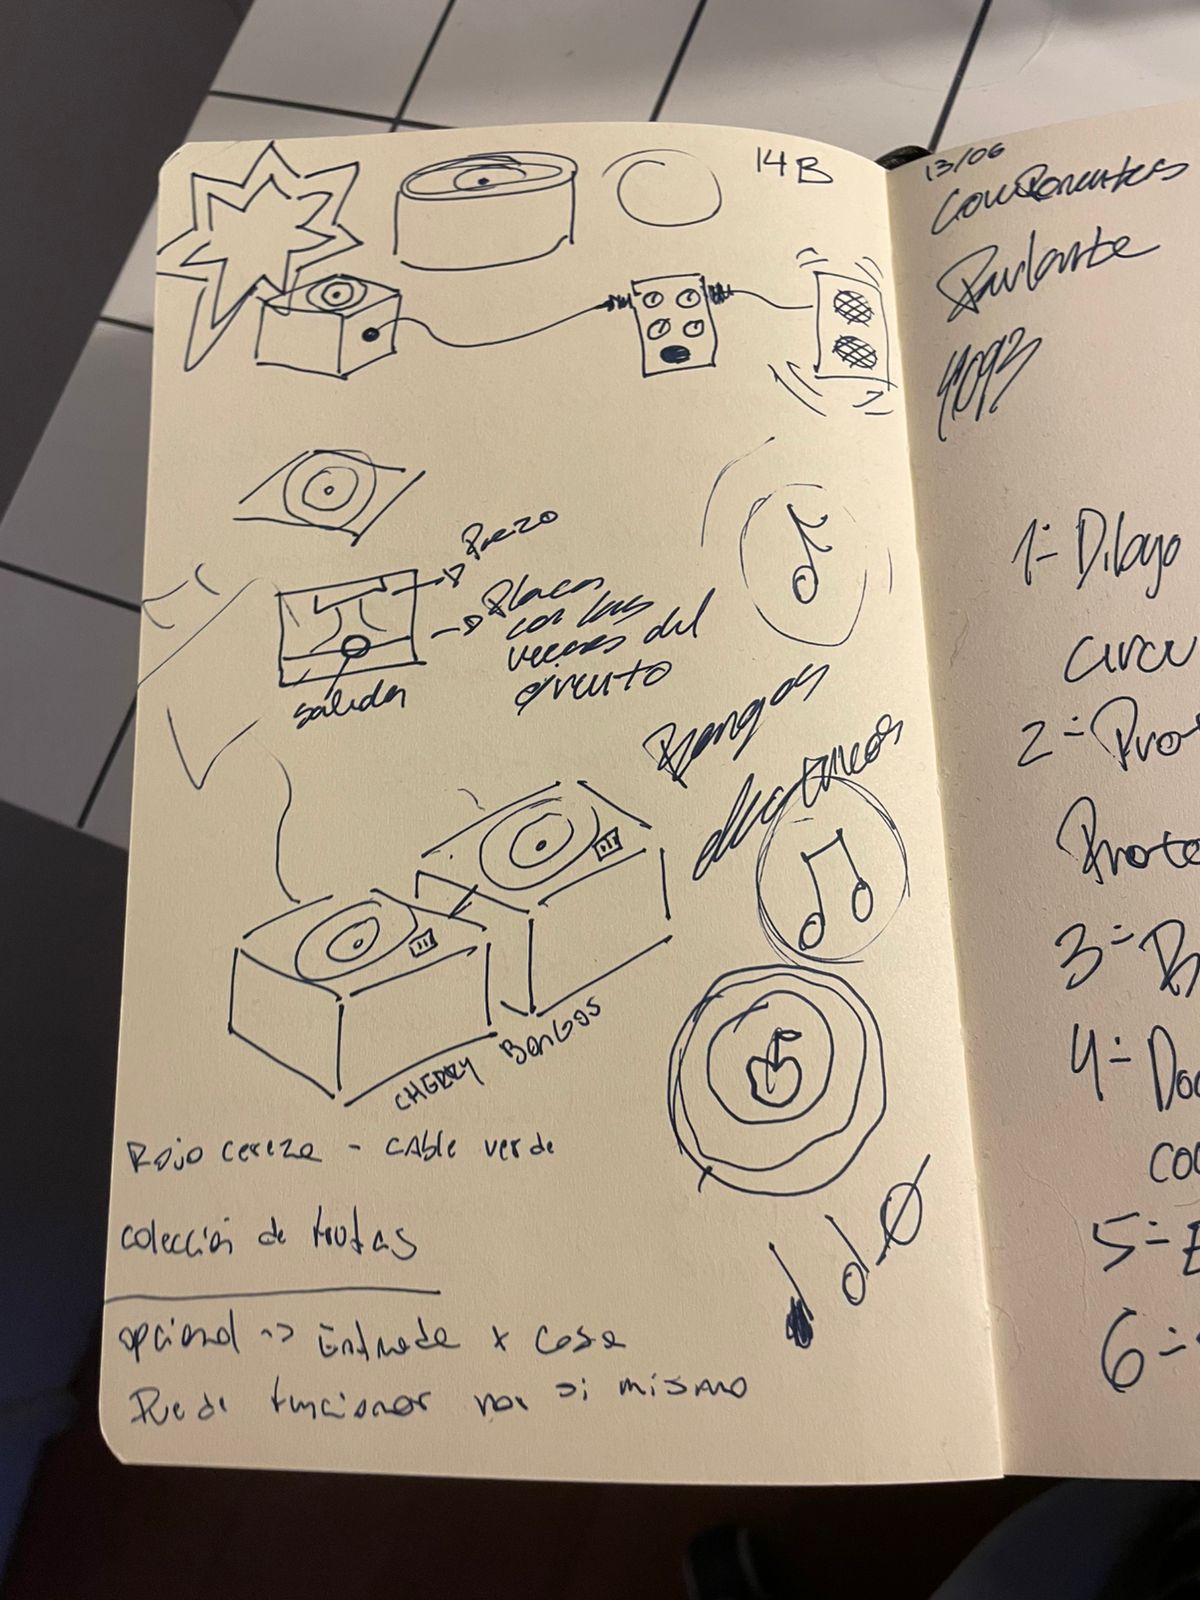 14B
Piezo
Placa
con las
veces del
circuito
salida
Bongos
electricos
CHERRY BONGOS
Rojo cereza - cable verde
colección de frutas
opcional => Entrada x Case
Puede funcionar por si mismo
13/06
Componentes
Parlante
4093
1- Dibujo
circu
2- Pro
Proto
3- B
4- Doc
co
5- E
6-